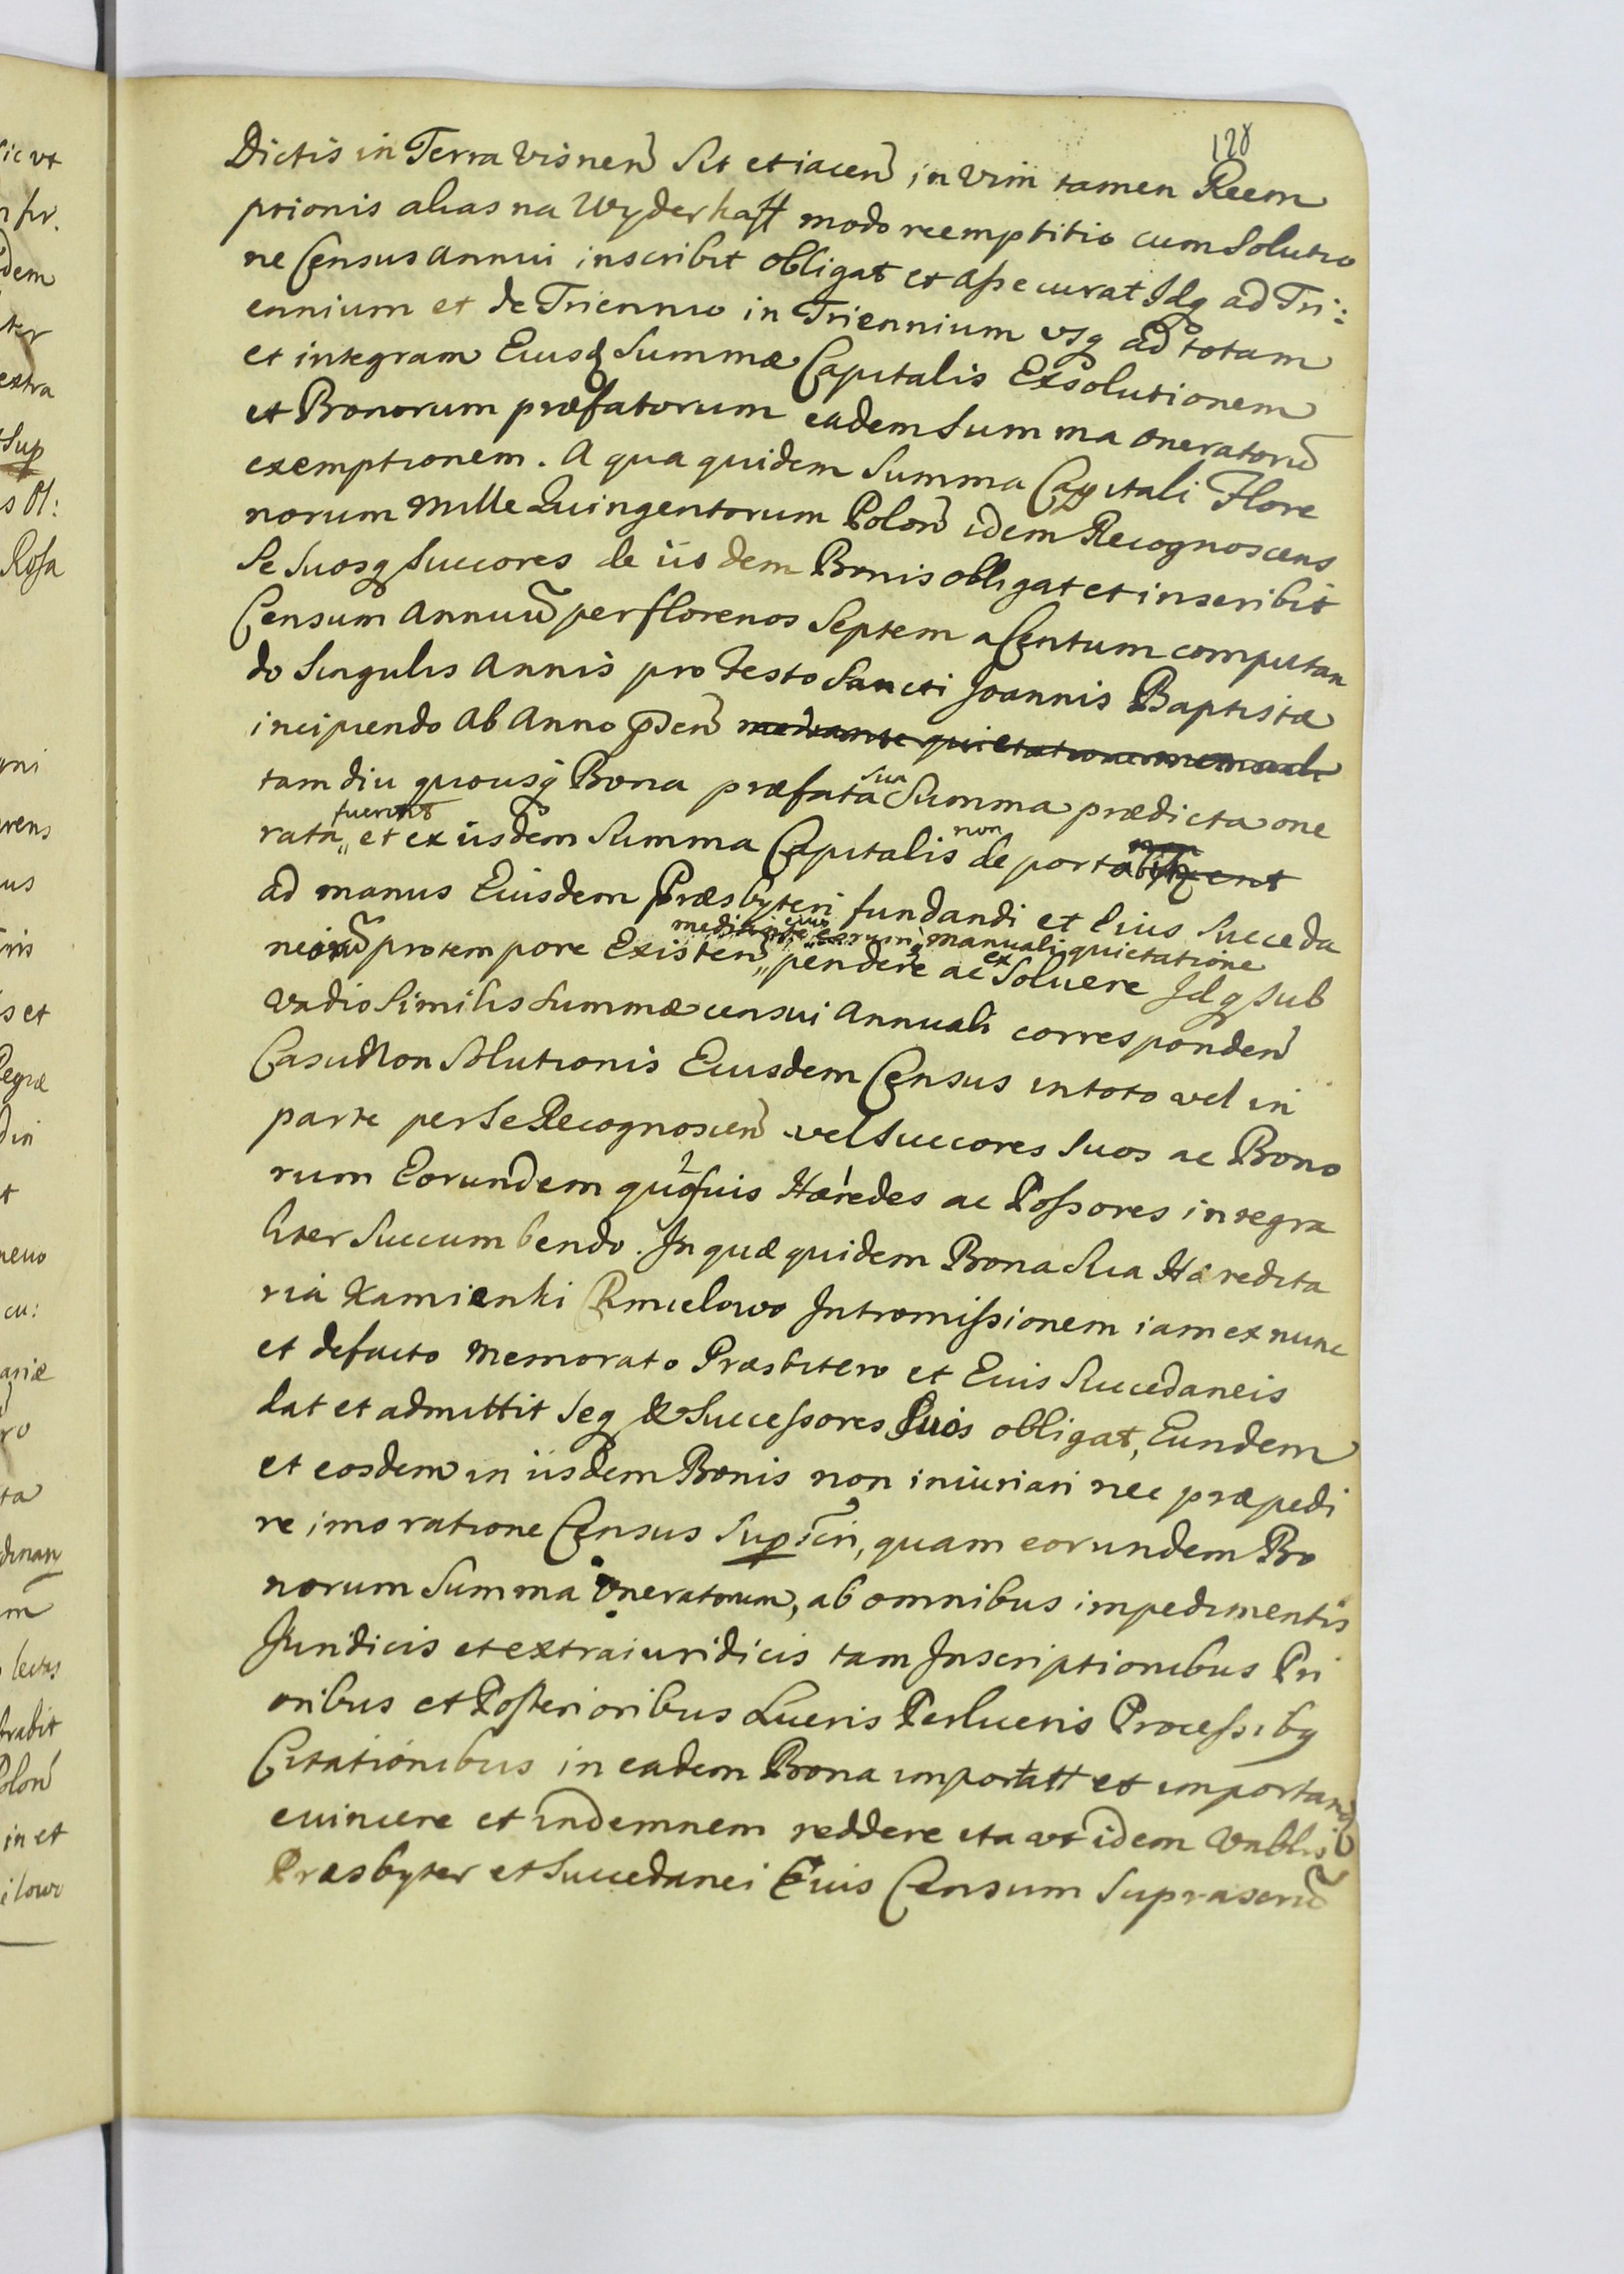 128
Dictis in Terra Visnen̄ Sit et iacen̄ in vim tamen Reem
ptionis alias na Wyderkaff modo reemptitio cum Solutio
ne Census annui inscribit obligat et assecurat Idq ad Tri:
ennium et de Triennio in Triennium vsq ad totam
et integram Eiusd Summæ Capitalis Exsolutionem
et Bonorum præfatorum eadem Summa oneratorū
exemptionem. A qua quidem Summa Capitali Flore
norum Mille Quingentorum Polon̄ idem Recognoscens
Se Suosq Succores de iisdem Bonis obligat et inscribit
Censum Annuū per florenos Septem a Centum computan
do Singulis Annis pro Festo Sancti Joannis Baptistæ
incipiendo ab Anno p̄sen̄ mediante quietatione manuali
tam diu quousq Bona præfata sua Summa prædicta one
rata fuerint et ex iisdem Summa Capitalis non de port
ad manus Eiusdem Præsbyteri fundandi et Eius Succeda
mediante eius manuali quietatione
neorū pro tempore Existen̄ pendere ac exSoluere Idq sub
vadio Similis Summæ censui Annuali corresponden̄
Casu Non Solutionis Eiusdem Census in toto vel in
parte per Se Recognoscen̄ vel Succores Suos ac Bono
rum Eorundem quosuis Hæredes ac Possores integra
liter Succumbendo. In quæ quidem Bona Sua Hæredita
ria Kamienki Chmielowo Intromissionem iam ex nunc
et de facto Memorato Præsbitero et Eius Succedaneis
dat et admittit Seq & Successores Suos obligat, Eundem
et eosdem in iisdem Bonis non iniuriari nec præpedi
re imo ratione Census Sup̄scri, quam eorundem Bo
norum Summa Oneratorum, ab omnibus impedimentis
Juridicis et extraiuridicis tam Inscriptionibus Pri
oribus et Posterioribus Lucris Perlucris Processibq
Citationibus in eadem Bona importatt et importand
euincere et indemnem reddere ita vt idem Vnblis
Præsbyter et Succedanei Eius Censum Suprascrū